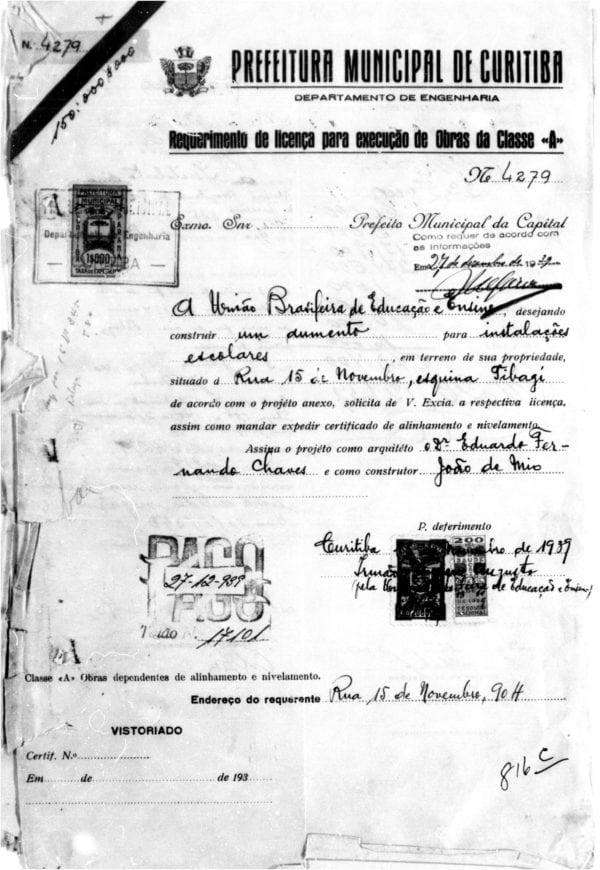 N. 4279
150:000$000
PREFEITURA MUNICIPAL DE CURITIBA
DEPARTAMENTO DE ENGENHARIA
Requerimento de licença para execução de Obras da Classe «A»
Nº 4279
PREFEITURA
MUNICIPAL
1$000
Engenharia
Exmo. Snr. Prefeito Municipal da Capital
Como requer de acordo com
as informações
Em 27 de dezembro de 1939
A União Brasileira de Educação e Ensino, desejando
construir um aumento para instalações
escolares, em terreno de sua propriedade,
situado á Rua 15 de Novembro, esquina Tibagí
de acordo com o projéto anexo, solicita de V. Excia. a respectiva licença,
assim como mandar expedir certificado de alinhamento e nivelamento.
Assina o projéto como arquitéto o Dr Eduardo Fer-
nando Chaves e como construtor João de Mio
P. deferimento
Curitiba de 1939
Irmão Augusto
(pela de Educação e Ensino)
200
PAGO
27-12-939
Talão N. 17101
Classe «A» Obras dependentes de alinhamento e nivelamento.
Endereço do requerente Rua 15 de Novembro, 904
VISTORIADO
Certif. N.º
Em de de 193
816 C